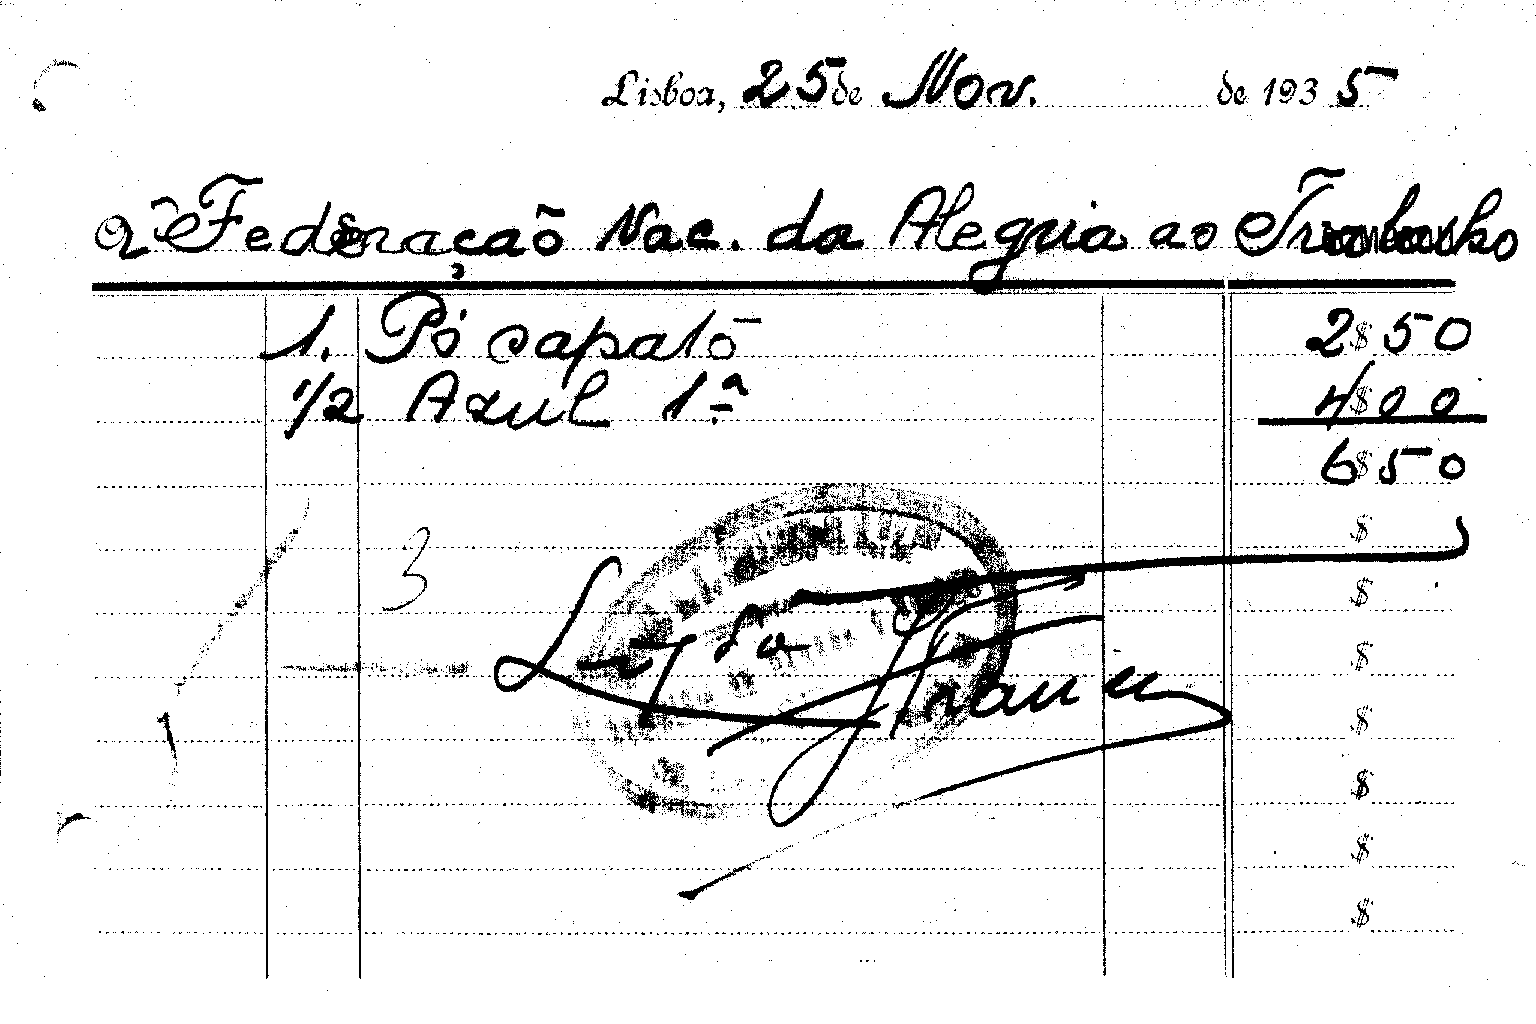 Lisboa, 25 de Nov. de 1935
Federação Nac. da Alegria ao Trabalho
1. Pó sapato 2$50
1/2 Azul 1.ª 4$00
6$50
$
3
$
$
$
$
$
$